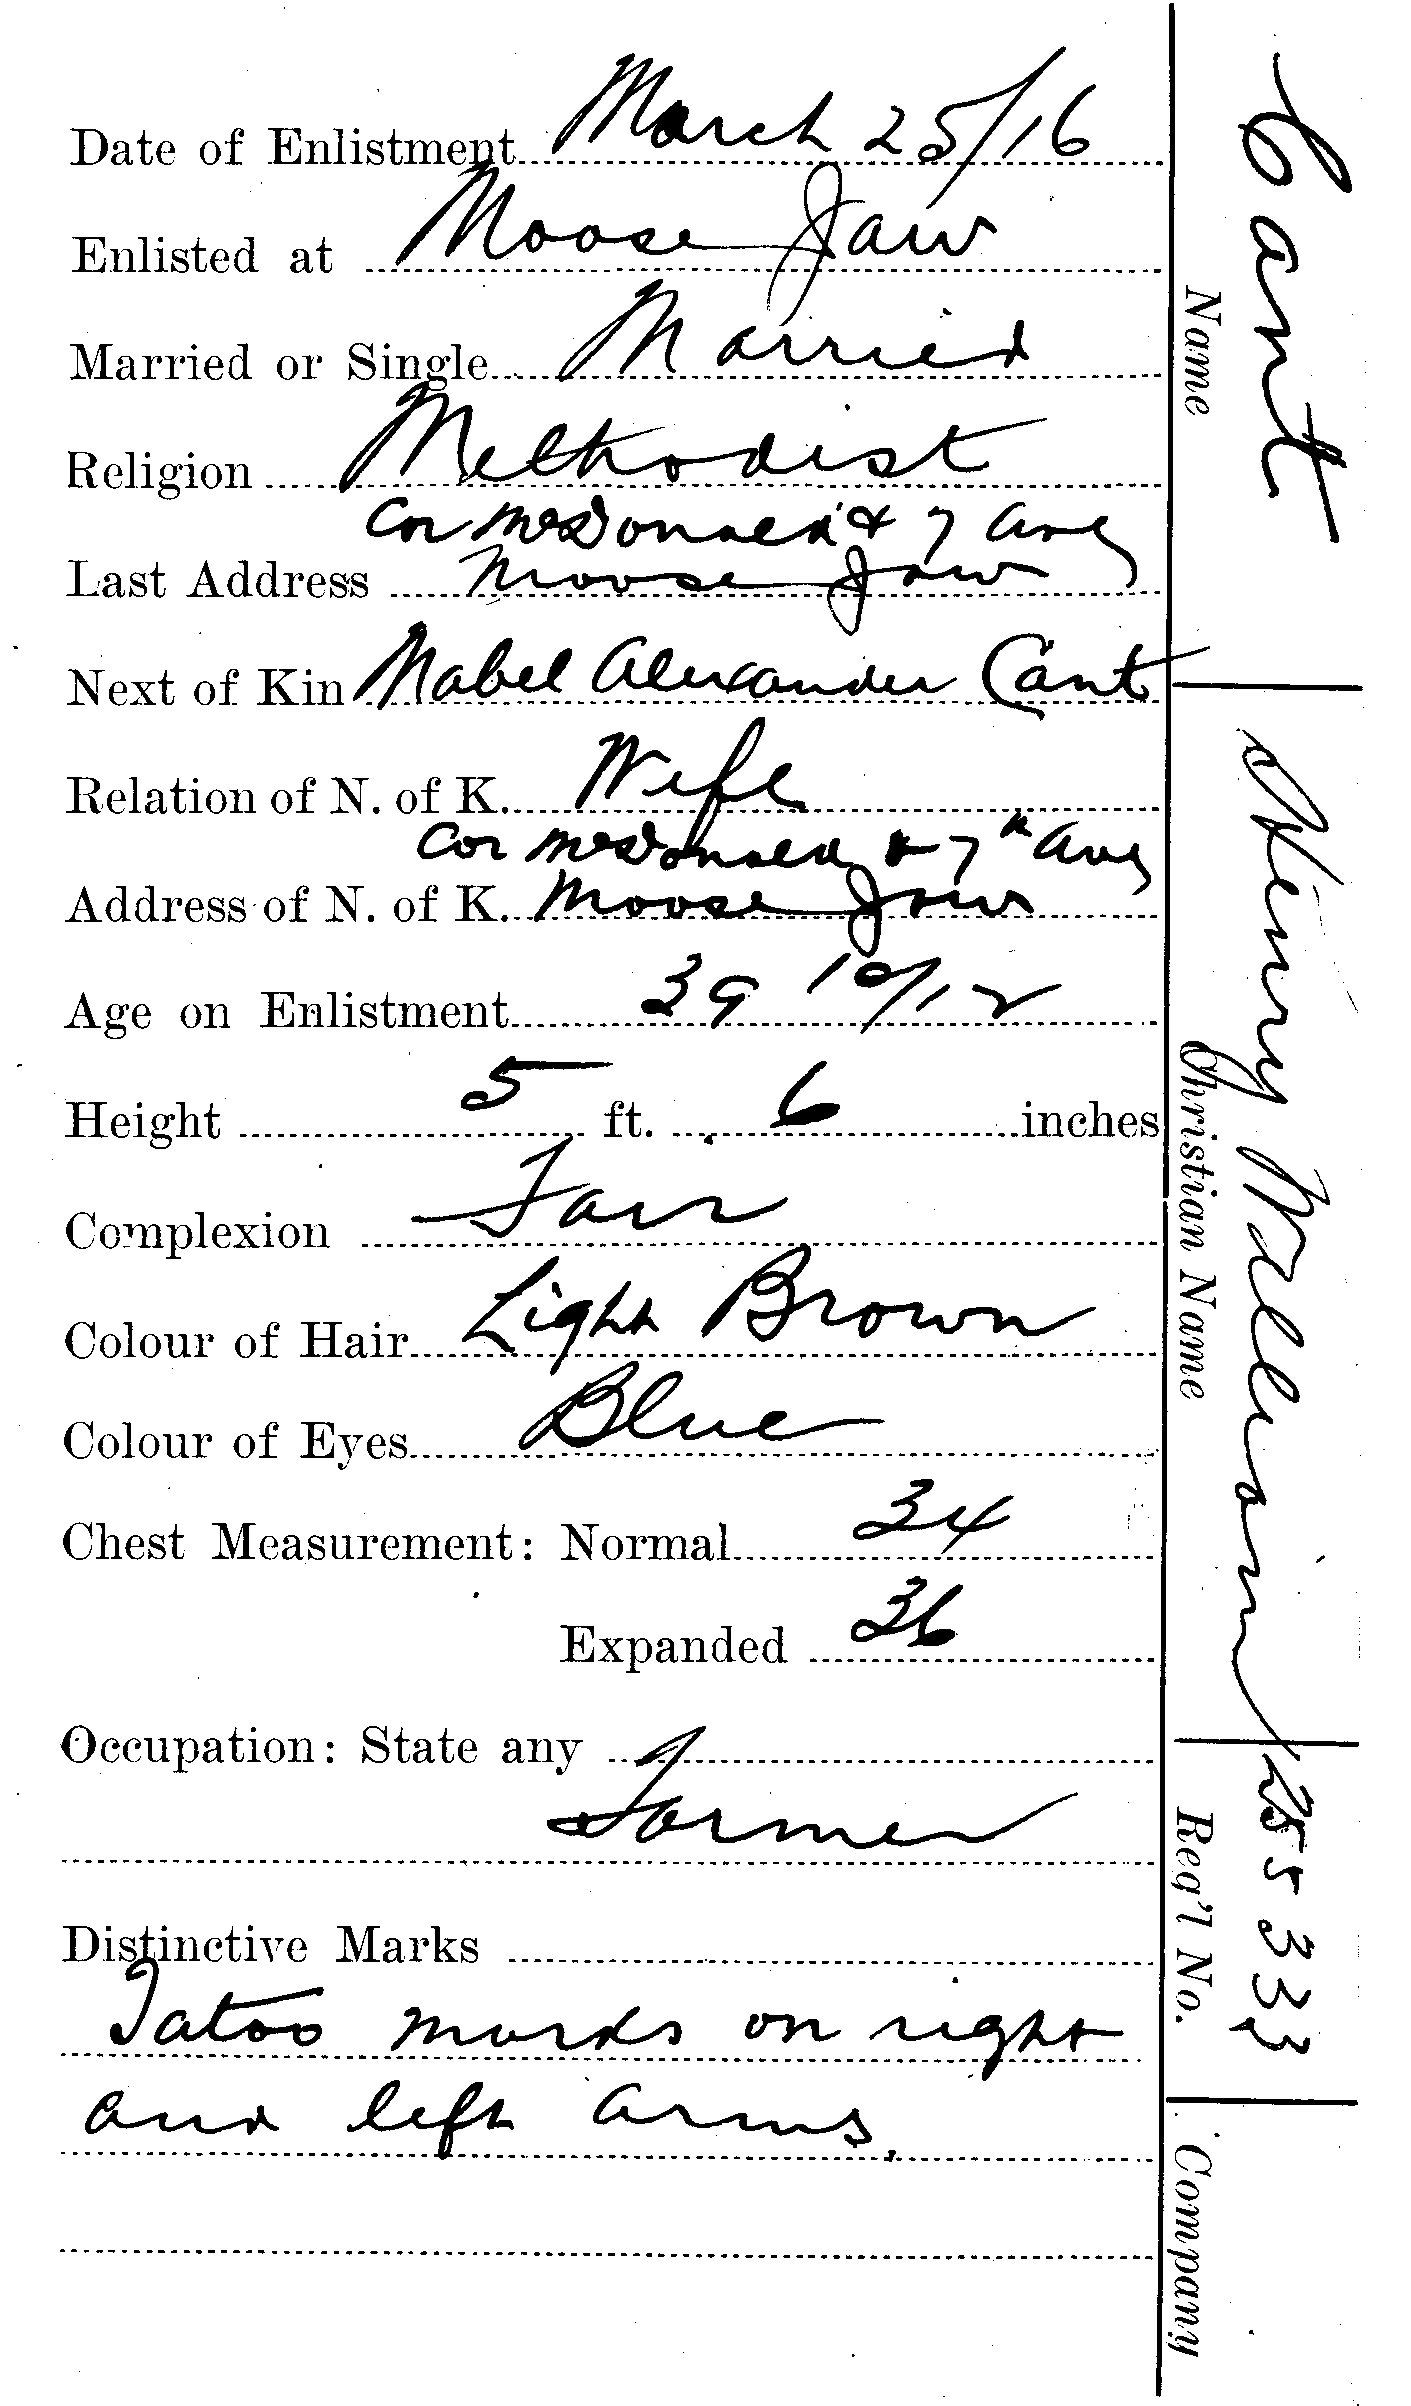 Date of Enlistment March 25/16
Enlisted at Moose Jaw
Married or Single Married
Religion Methodist
Cor McDonald & 7 Ave
Last Address Moose Jaw
Next of Kin Mabel Alexander Cant
Relation of N. of K. Wife
Cor McDonald & 7th Ave
Address of N. of K. Moose Jaw
Age on Enlistment 39 10/12
Height 5 ft. 6 inches
Complexion Fair
Colour of Hair Light Brown
Colour of Eyes Blue
Chest Measurement: Normal 34
Expanded 36
Occupation: State any
Farmer
Distinctive Marks
Tatoo marks on right
and left arms.
Cant
Name
Henry William
Christian Name
255333
Reg'l No.
Company